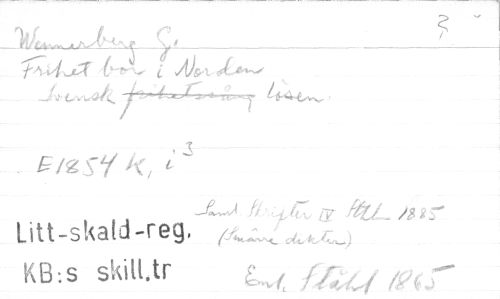 3
Wennerberg G.
Frihet bor i Norden
Svensk frihetssång lösen.
E1854 k, i 3
Saml Skrifter IV Sthl 1885
(Smärre dikter)
Litt-skald-reg.
KB:s skill.tr
Enl. Ståhl 1865